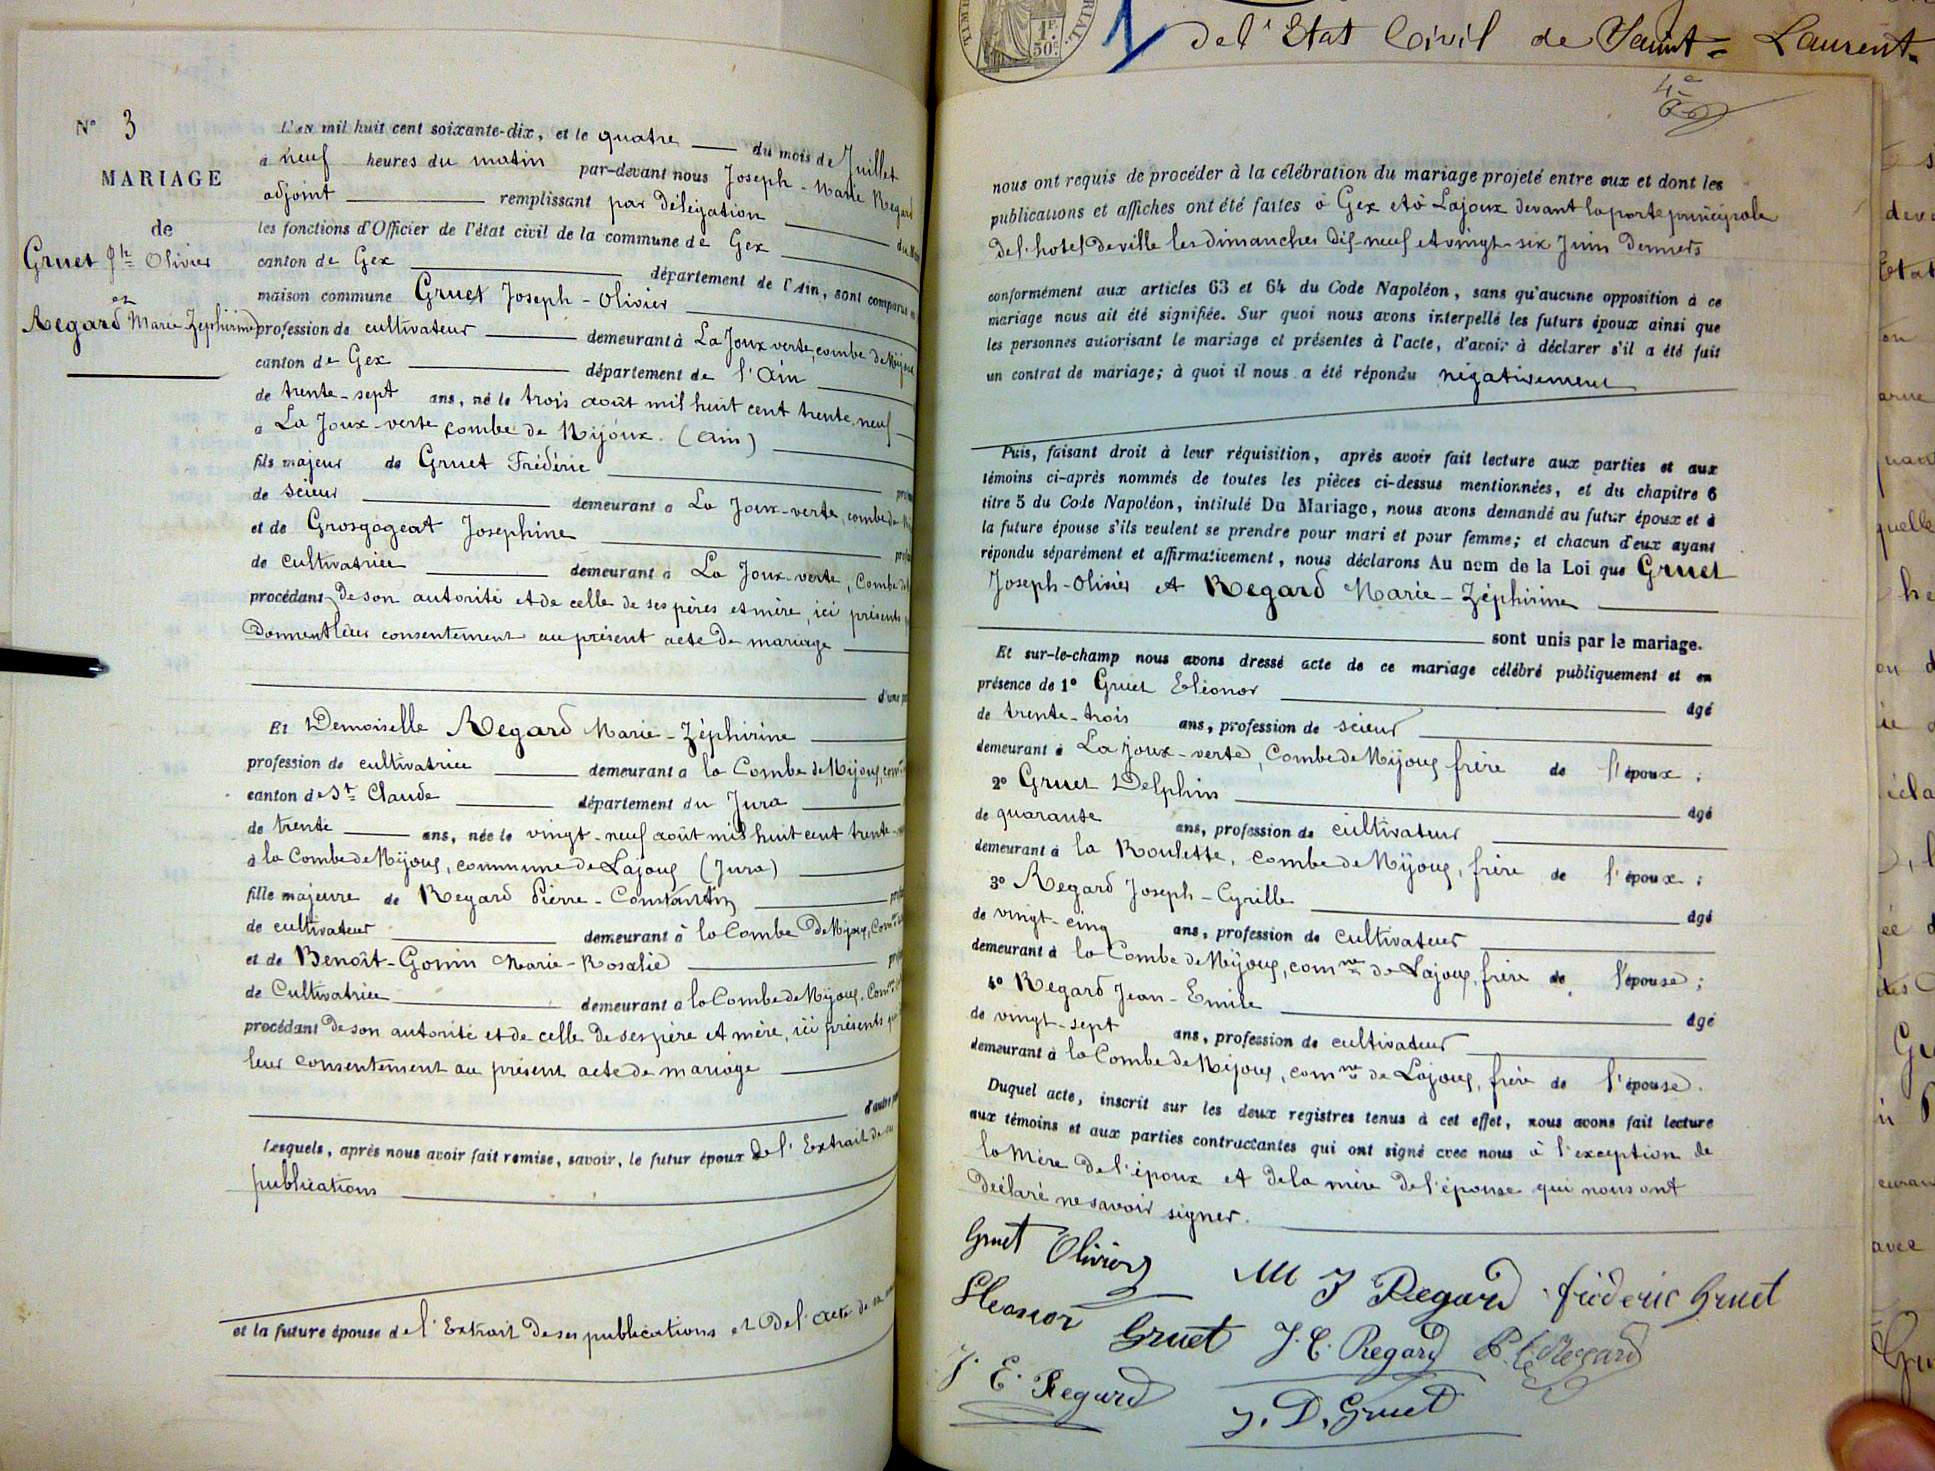 N° 3
MARIAGE
de
Gruet Jh Olivier
et
Regard Marie-Zéphirine
L'an mil huit cent soixante-dix, et le quatre du mois de Juillet
à neuf heures du matin par-devant nous Joseph-Marie Regard
adjoint remplissant par délégation du
les fonctions d'Officier de l'état civil de la commune de Gex
canton de Gex département de l'Ain, sont comparus
maison commune Gruet Joseph-Olivier
profession de cultivateur demeurant à La Joux verte, combe de Mijoux
canton de Gex département de l'Ain
de trente-sept ans, né le trois août mil huit cent trente neuf
à La Joux-verte combe de Mijoux. (Ain)
fils majeur de Gruet Frédéric
de scieur demeurant à La Joux-verte, combe de
et de Grosgogeat Joséphine
de cultivatrice demeurant à La Joux-verte, Combe de
procédant de son autorité et de celle de ses pères et mère, ici présents
donnent leur consentement au présent acte de mariage
d'une
Et Demoiselle Regard Marie-Zéphirine
profession de cultivatrice demeurant à la Combe de Mijoux,
canton de St Claude département du Jura
de trente ans, née le vingt-neuf août mil huit cent trente-
à la Combe de Mijoux, commune de Lajoux (Jura)
fille majeure de Regard Pierre-Constantin
de cultivateur demeurant à la Combe de Mijoux,
et de Benoît-Gonin Marie-Rosalie
de Cultivatrice demeurant à la Combe de Mijoux.
procédant de son autorité et de celle de ses père et mère, ici présents
leur consentement au présent acte de mariage
d'autre
Lesquels, après nous avoir fait remise, savoir, le futur époux de l'Extrait de
publications
et la future épouse de l'Extrait de ses publications et de l'acte de sa
1F.
50c
de l'Etat Civil de Saint-Laurent-
nous ont requis de procéder à la célébration du mariage projeté entre eux et dont les
publications et affiches ont été faites à Gex et à Lajoux devant la porte principale
de l'hotel de ville les dimanches dix-neuf et vingt-six Juin derniers
conformément aux articles 63 et 64 du Code Napoléon, sans qu'aucune opposition à ce
mariage nous ait été signifiée. Sur quoi nous avons interpellé les futurs époux ainsi que
les personnes autorisant le mariage et présentes à l'acte, d'avoir à déclarer s'il a été fait
un contrat de mariage; à quoi il nous a été répondu négativement
Puis, faisant droit à leur réquisition, après avoir fait lecture aux parties et aux
témoins ci-après nommés de toutes les pièces ci-dessus mentionnées, et du chapitre 6
titre 5 du Code Napoléon, intitulé Du Mariage, nous avons demandé au futur époux et à
la future épouse s'ils veulent se prendre pour mari et pour femme; et chacun d'eux ayant
répondu séparément et affirmativement, nous déclarons Au nom de la Loi que Gruet
Joseph-Olivier et Regard Marie-Zéphirine
sont unis par le mariage.
Et sur-le-champ nous avons dressé acte de ce mariage célébré publiquement et en
présence de 1° Gruet Eléonor âgé
de trente-trois ans, profession de scieur
demeurant à La joux-verte, Combe de Mijoux frère de l'époux;
2° Gruet Delphin âgé
de quarante ans, profession de cultivateur
demeurant à la Roulette, combe de Mijoux, frère de l'époux;
3° Regard Joseph-Cyrille âgé
de vingt-cinq ans, profession de cultivateur
demeurant à la Combe de Mijoux, comne de Lajoux, frère de l'épouse;
4° Regard Jean-Emile âgé
de vingt-sept ans, profession de cultivateur
demeurant à la Combe de Mijoux, comne de Lajoux, frère de l'épouse.
Duquel acte, inscrit sur les deux registres tenus à cet effet, nous avons fait lecture
aux témoins et aux parties contractantes qui ont signé avec nous à l'exception de
la Mère de l'époux et de la mère de l'épouse qui nous ont
déclaré ne savoir signer.
Gruet Olivier M Z Regard frédéric Gruet
Eleonor Gruet J. C. Regard P. C. Regard
J. E. Regard J. D. Gruet